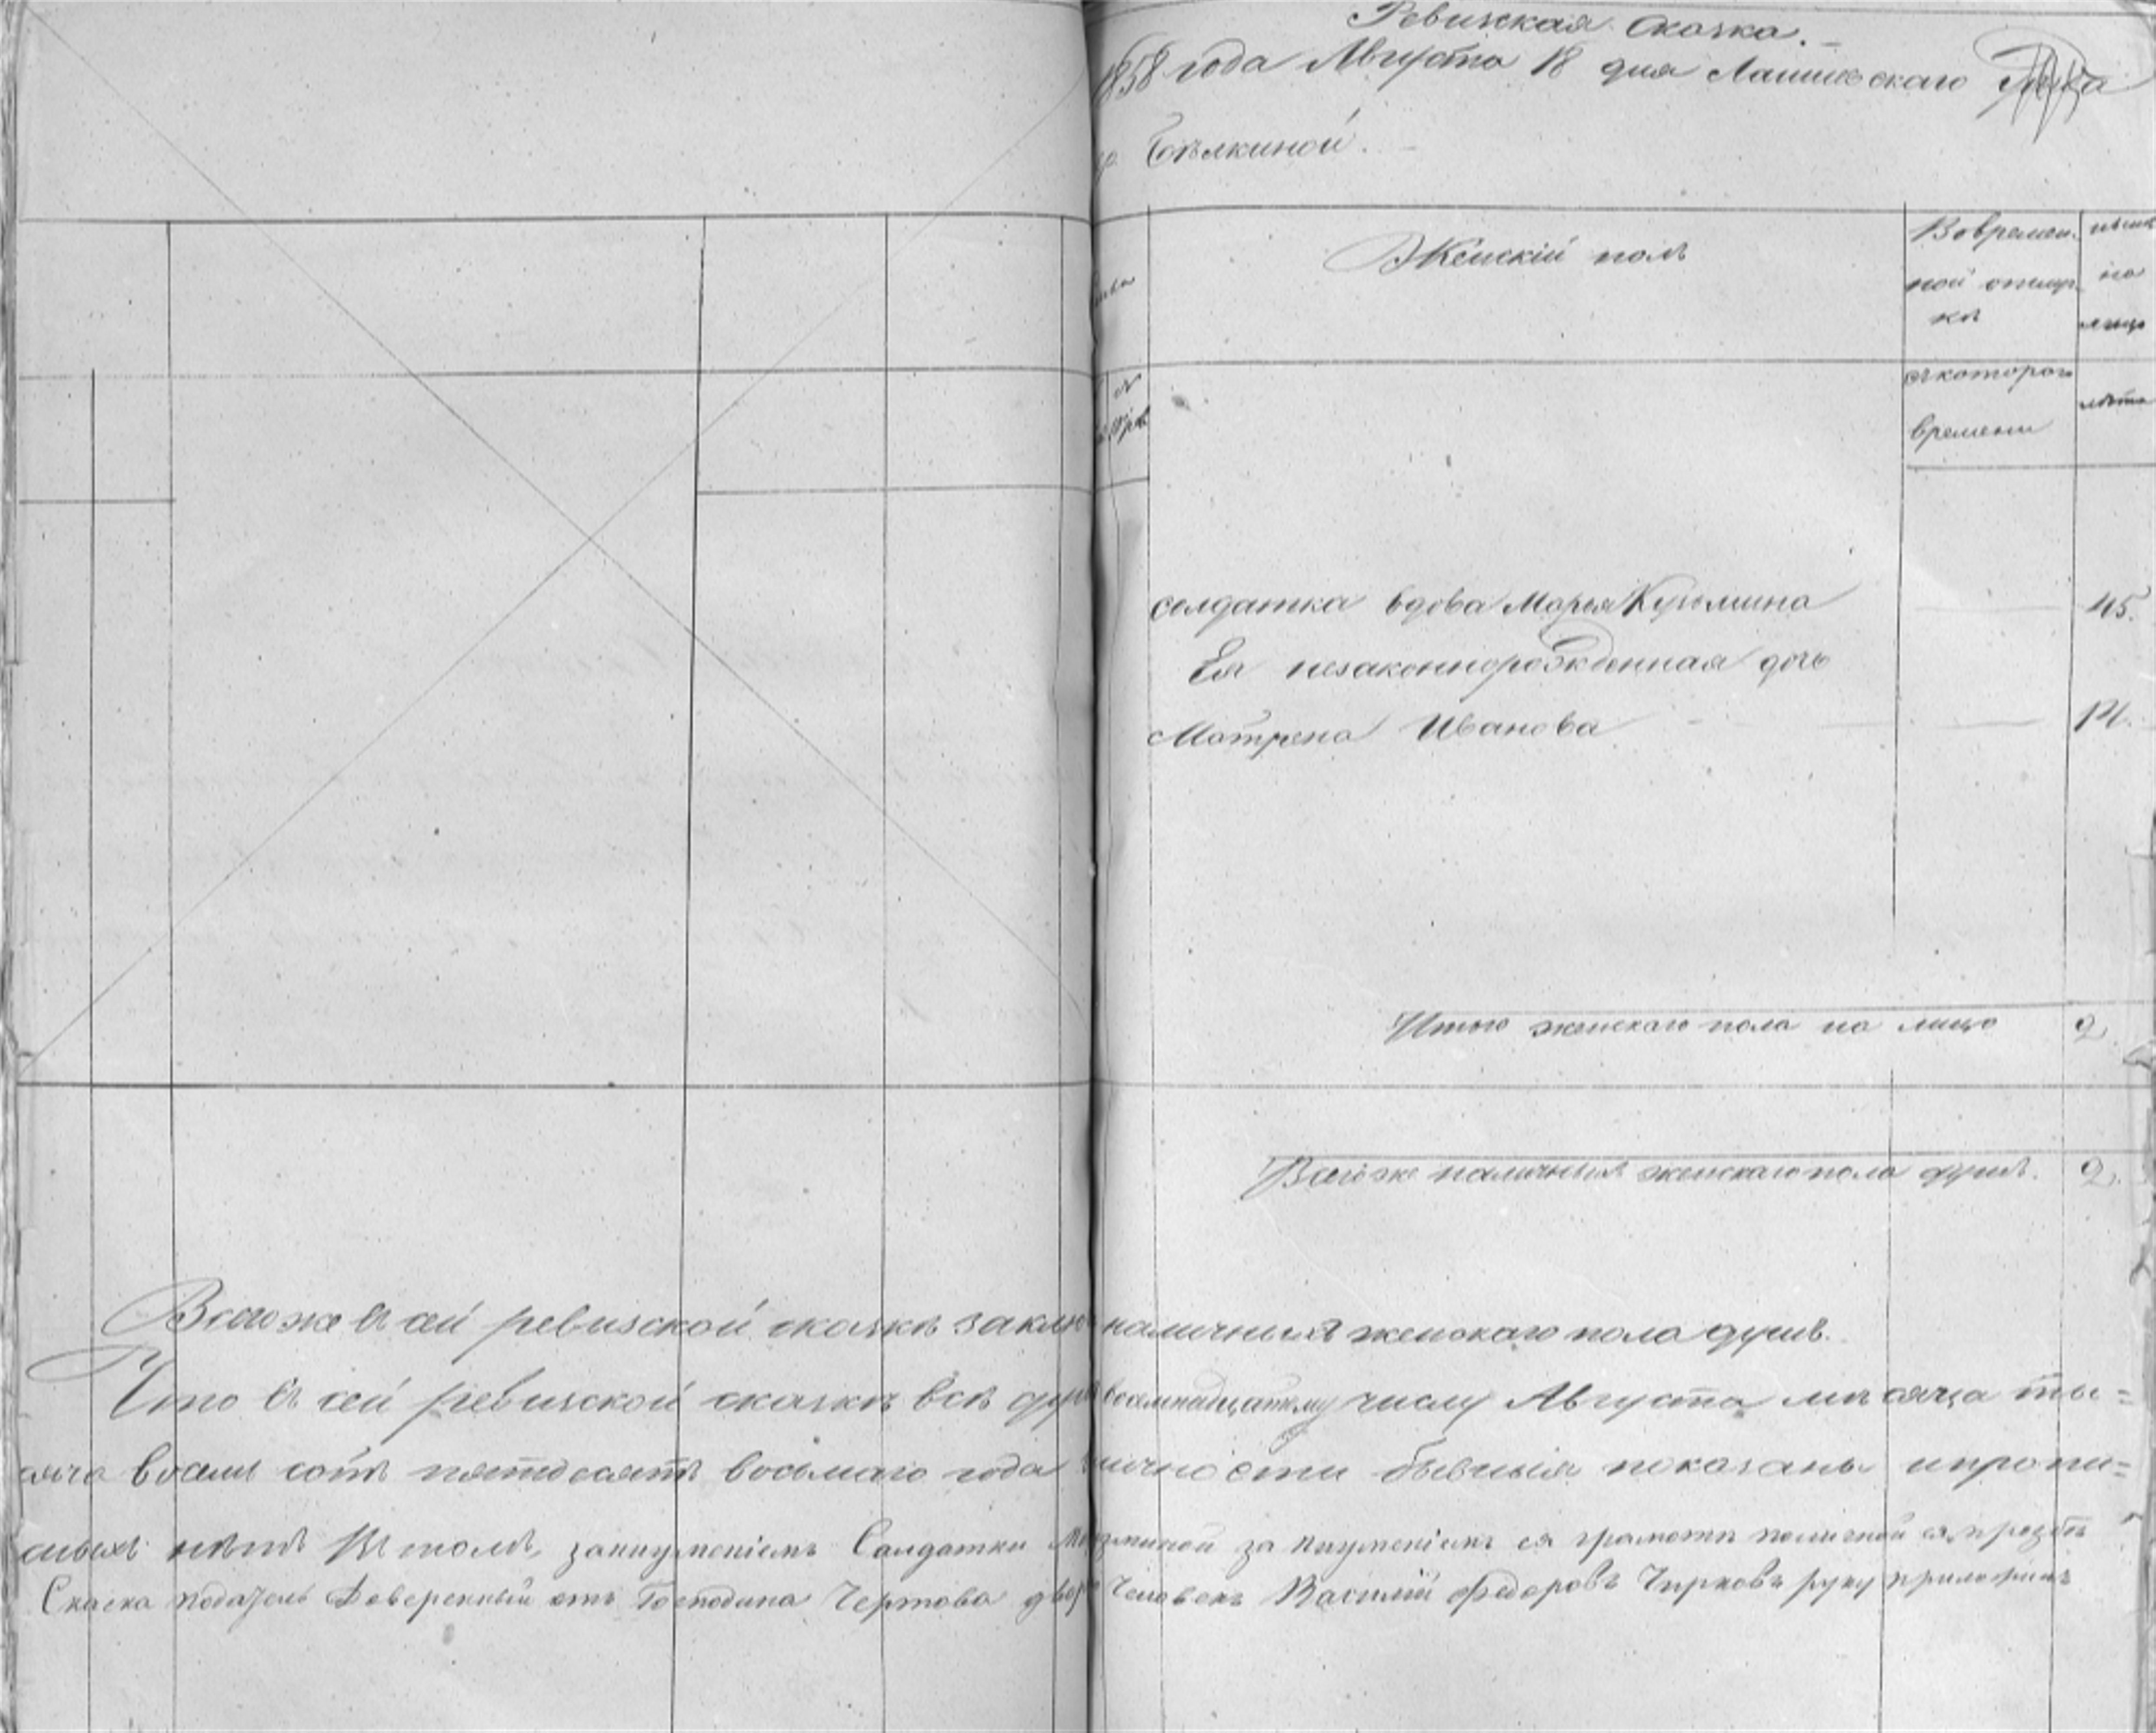 Ревизская Сказка.
1858 года Августа 18 дня Лаишевскаго
Бѣлкиной.
Женскій полъ
Во времен-
ной отлуч-
кѣ
на
лицо
съ котораго
времени
лѣта
солдатка вдова Марья Кузьмина 45.
Ея незаконнорожденная дочь
Матрена Иванова 14.
Итого женскаго пола на лицо 2
Всего же наличныхъ женскаго пола душъ. 2.
Всего же въ сей ревизской сказкѣ заклю наличныхъ женскаго пола душъ.
Что въ сей ревизской сказкѣ всѣ душ восемнадцатому числу Августа мѣсяца ты=
сяча восемь сотъ пятьдесятъ восьмаго года личности бывшія показаны и пропи=
сныхъ нѣтъ Въ томъ, за неумѣніемъ Солдатки за неумѣніемъ ея грамотѣ по личной ея прозбѣ
Скаска подачель Доверенный отъ Господина Чертова двор человекъ Василій Федоровъ Чирковъ руку приложилъ